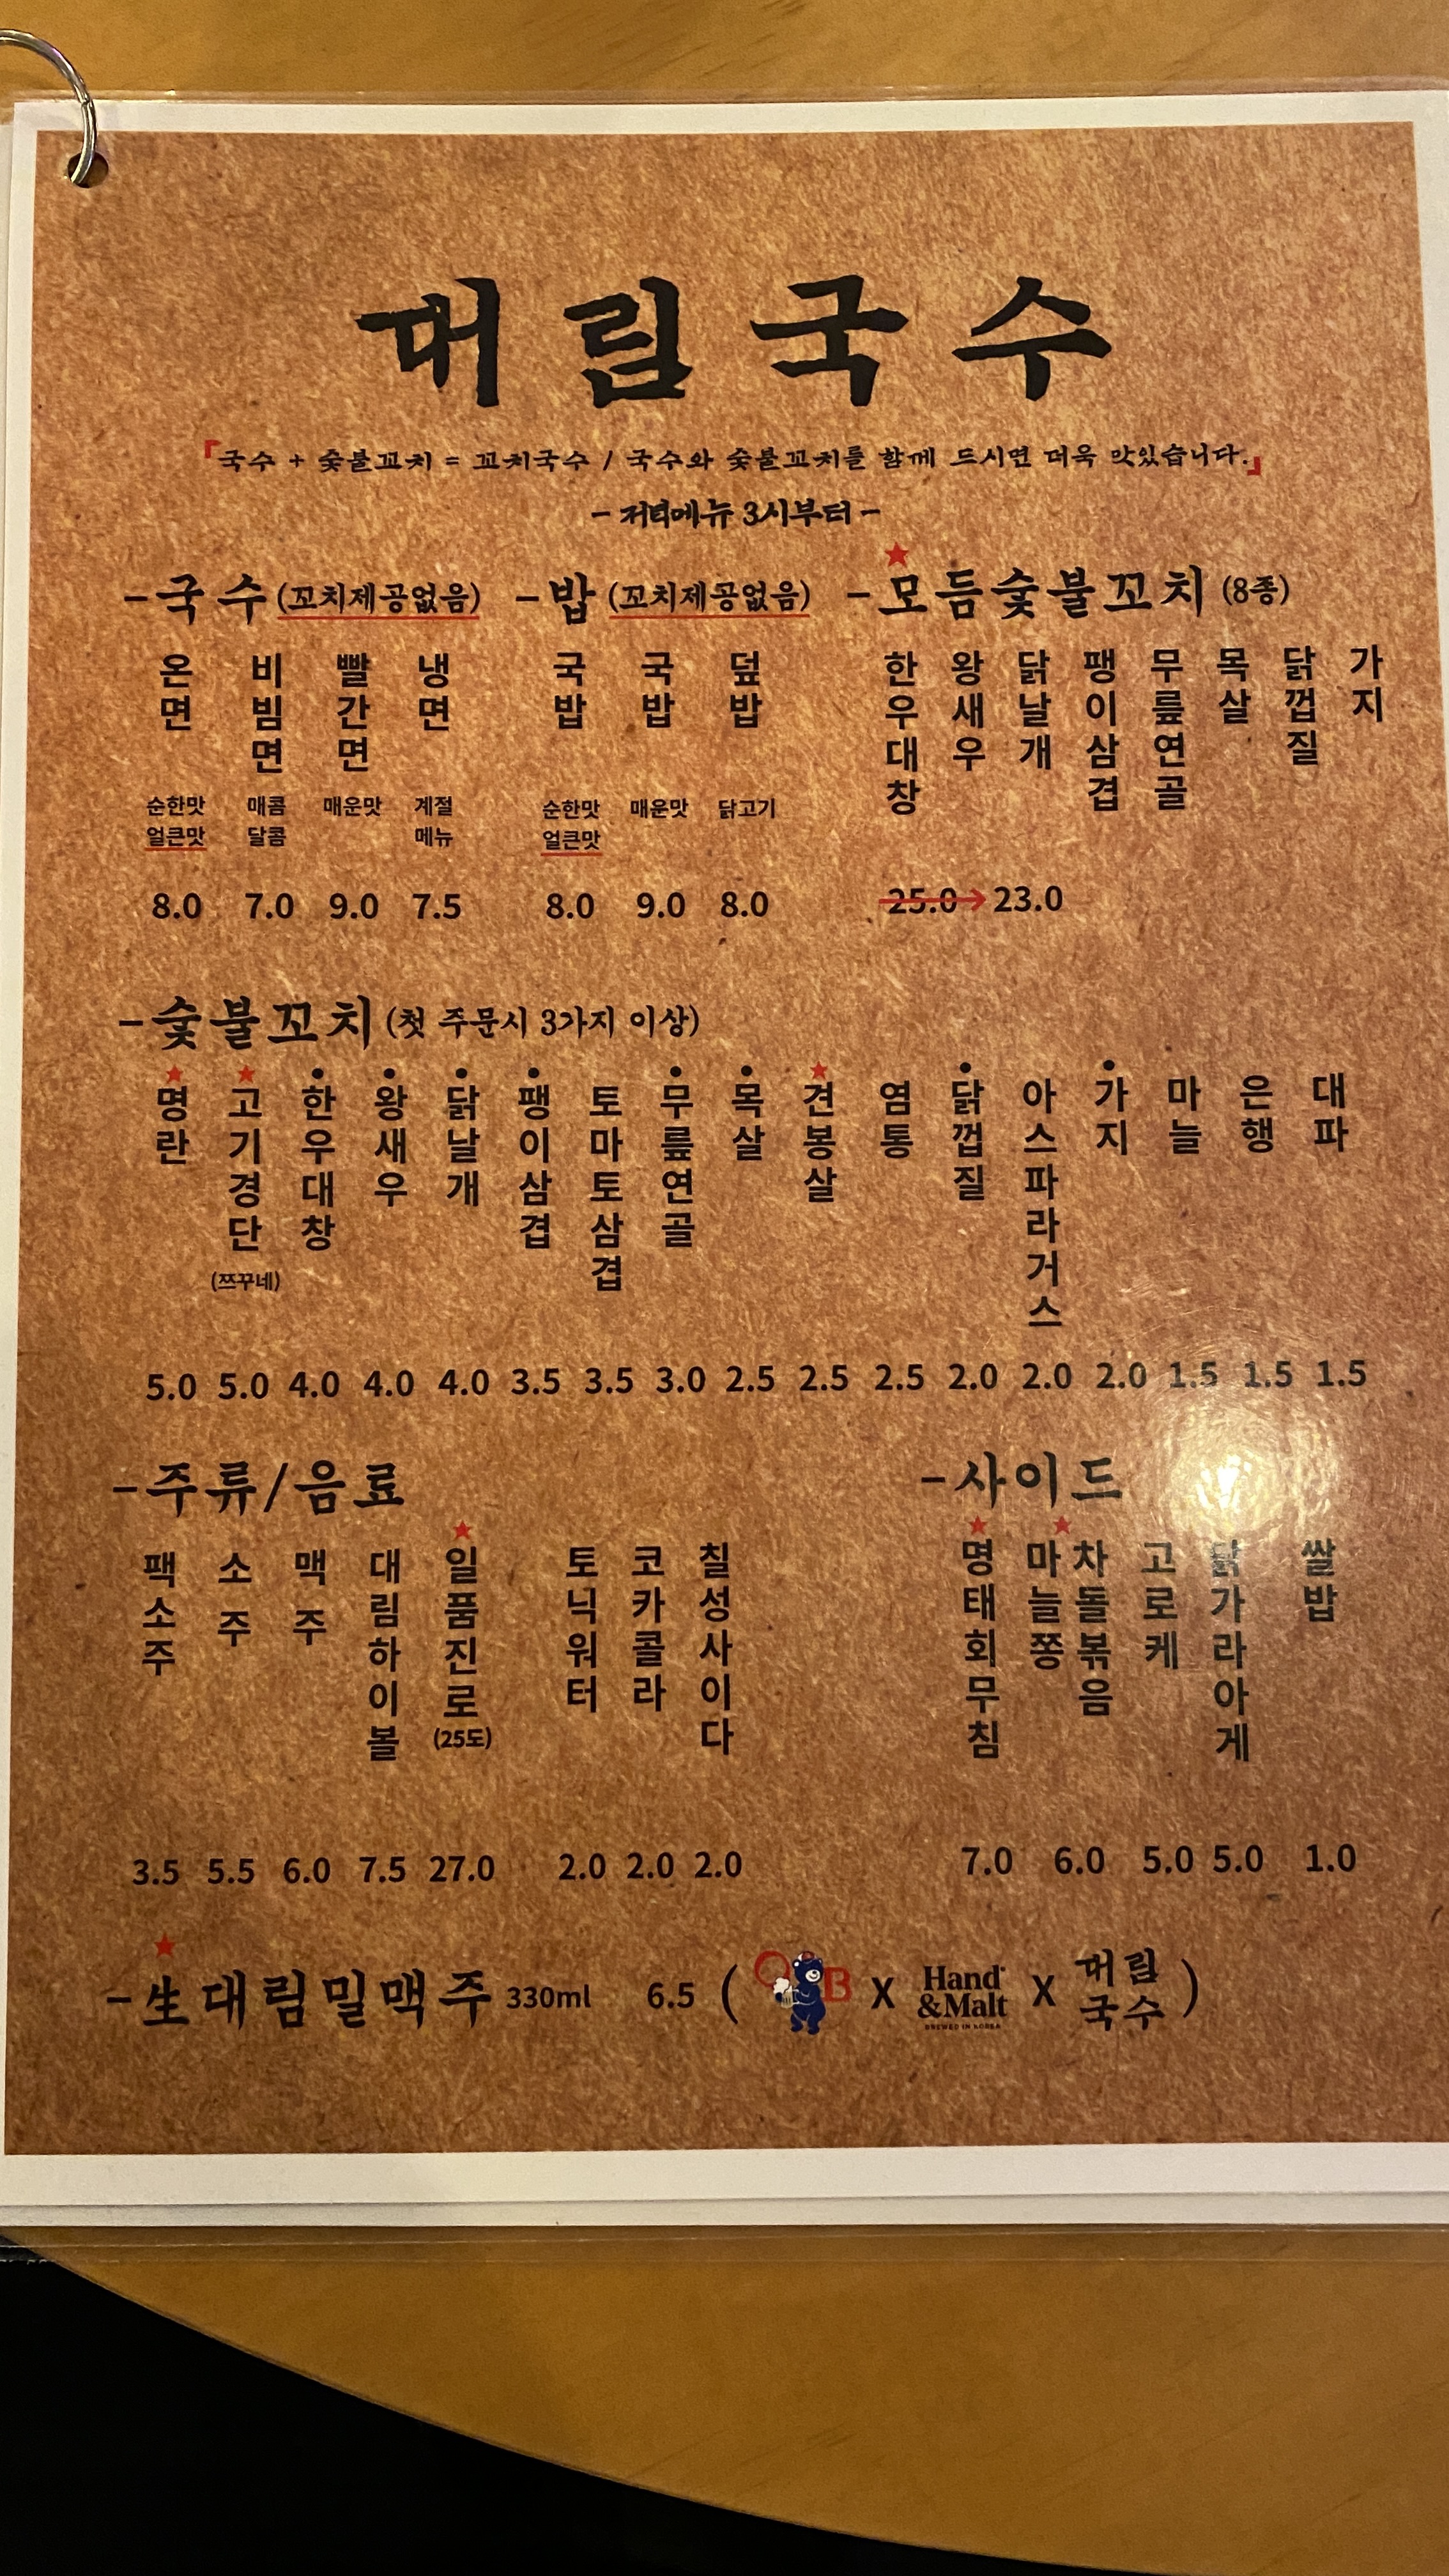 대림국수
「국수 + 숯불꼬치 = 꼬치국수 / 국수와 숯불꼬치를 함께 드시면 더욱 맛있습니다.」
- 저녁메뉴 3시부터 -
-국수 (꼬치제공없음)
온면 비빔면 빨간면 냉면
순한맛 매콤 매운맛 계절
얼큰맛 달콤 메뉴
8.0 7.0 9.0 7.5
-밥 (꼬치제공없음)
국밥 국밥 덮밥
순한맛 매운맛 닭고기
얼큰맛
8.0 9.0 8.0
★
-모듬숯불꼬치 (8종)
한우대창 왕새우 닭날개 팽이삼겹 무릎연골 목살 닭껍질 가지
25.0→23.0
-숯불꼬치 (첫 주문시 3가지 이상)
★ ★ • • • • • • ★ • •
명란 고기경단 한우대창 왕새우 닭날개 팽이삼겹 토마토삼겹 무릎연골 목살 견봉살 염통 닭껍질 아스파라거스 가지 마늘 은행 대파
(쯔꾸네)
5.0 5.0 4.0 4.0 4.0 3.5 3.5 3.0 2.5 2.5 2.5 2.0 2.0 2.0 1.5 1.5 1.5
-주류/음료
★
팩소주 소주 맥주 대림하이볼 일품진로 토닉워터 코카콜라 칠성사이다
(25도)
3.5 5.5 6.0 7.5 27.0 2.0 2.0 2.0
-사이드
★ ★
명태회무침 마늘쫑차돌볶음 고로케 닭가라아게 쌀밥
7.0 6.0 5.0 5.0 1.0
★
-生대림밀맥주 330ml 6.5 ( OB X Hand &Malt BREWED IN KOREA X 대림국수 )